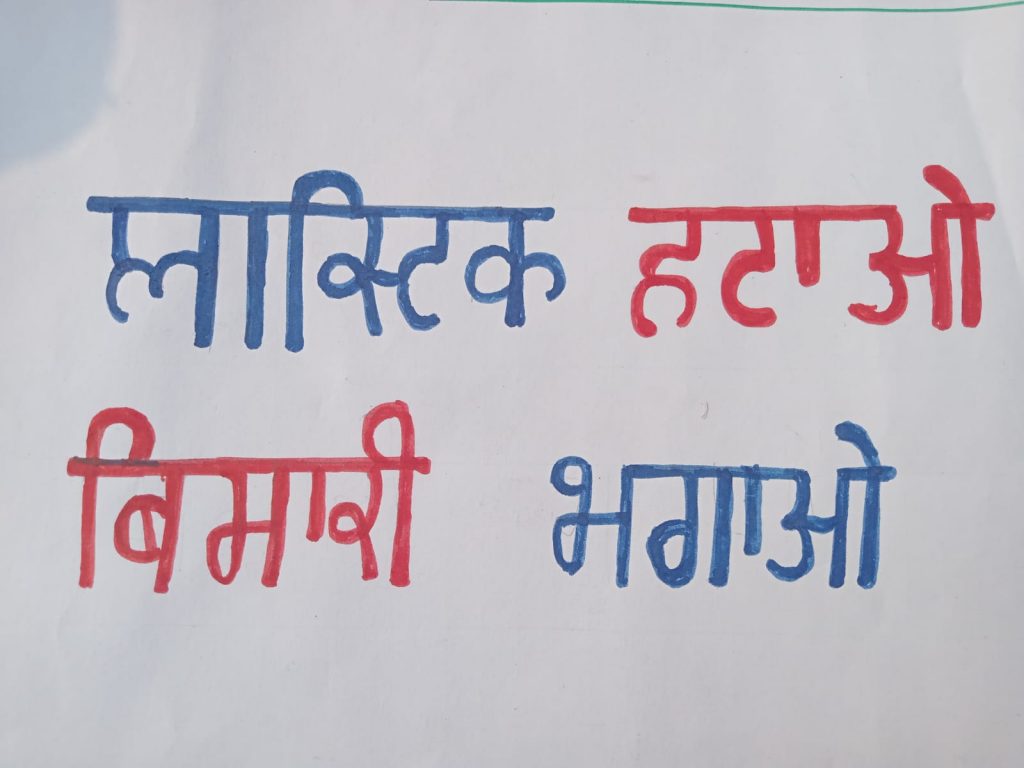 लास्टिक हटाओ
बिमारी भगाओ